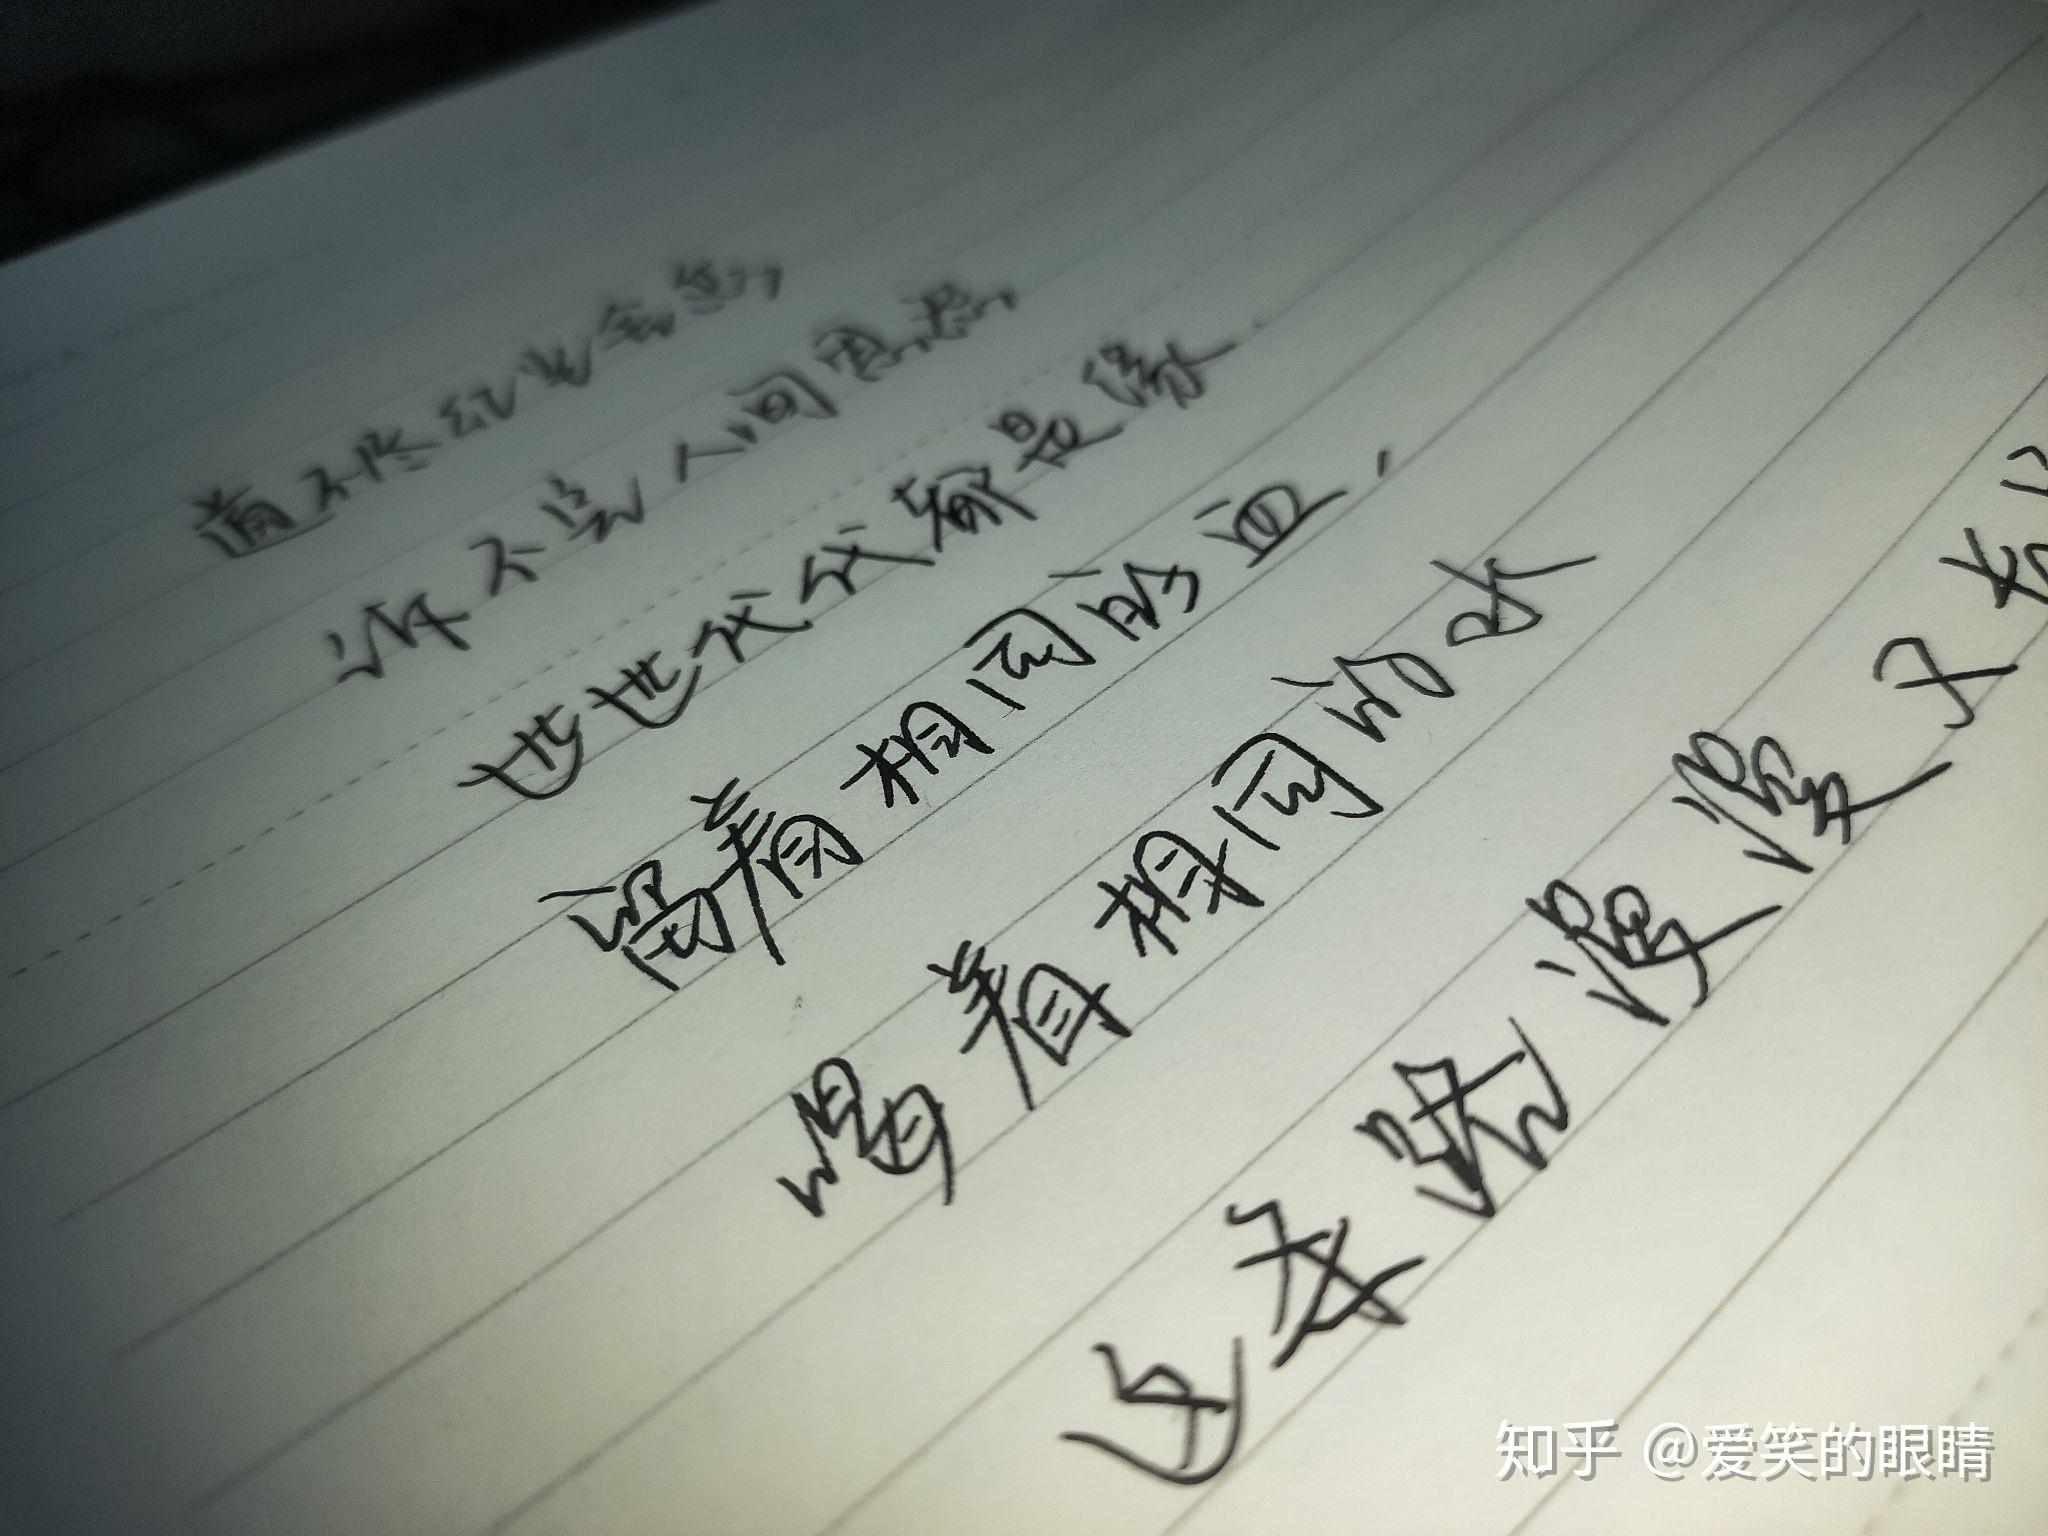 道不尽红尘奢恋
诉不完人间恩怨
世世代代都是缘
留着相同的血,
喝着相同的水
这条路漫漫又长
知乎 @爱笑的眼睛